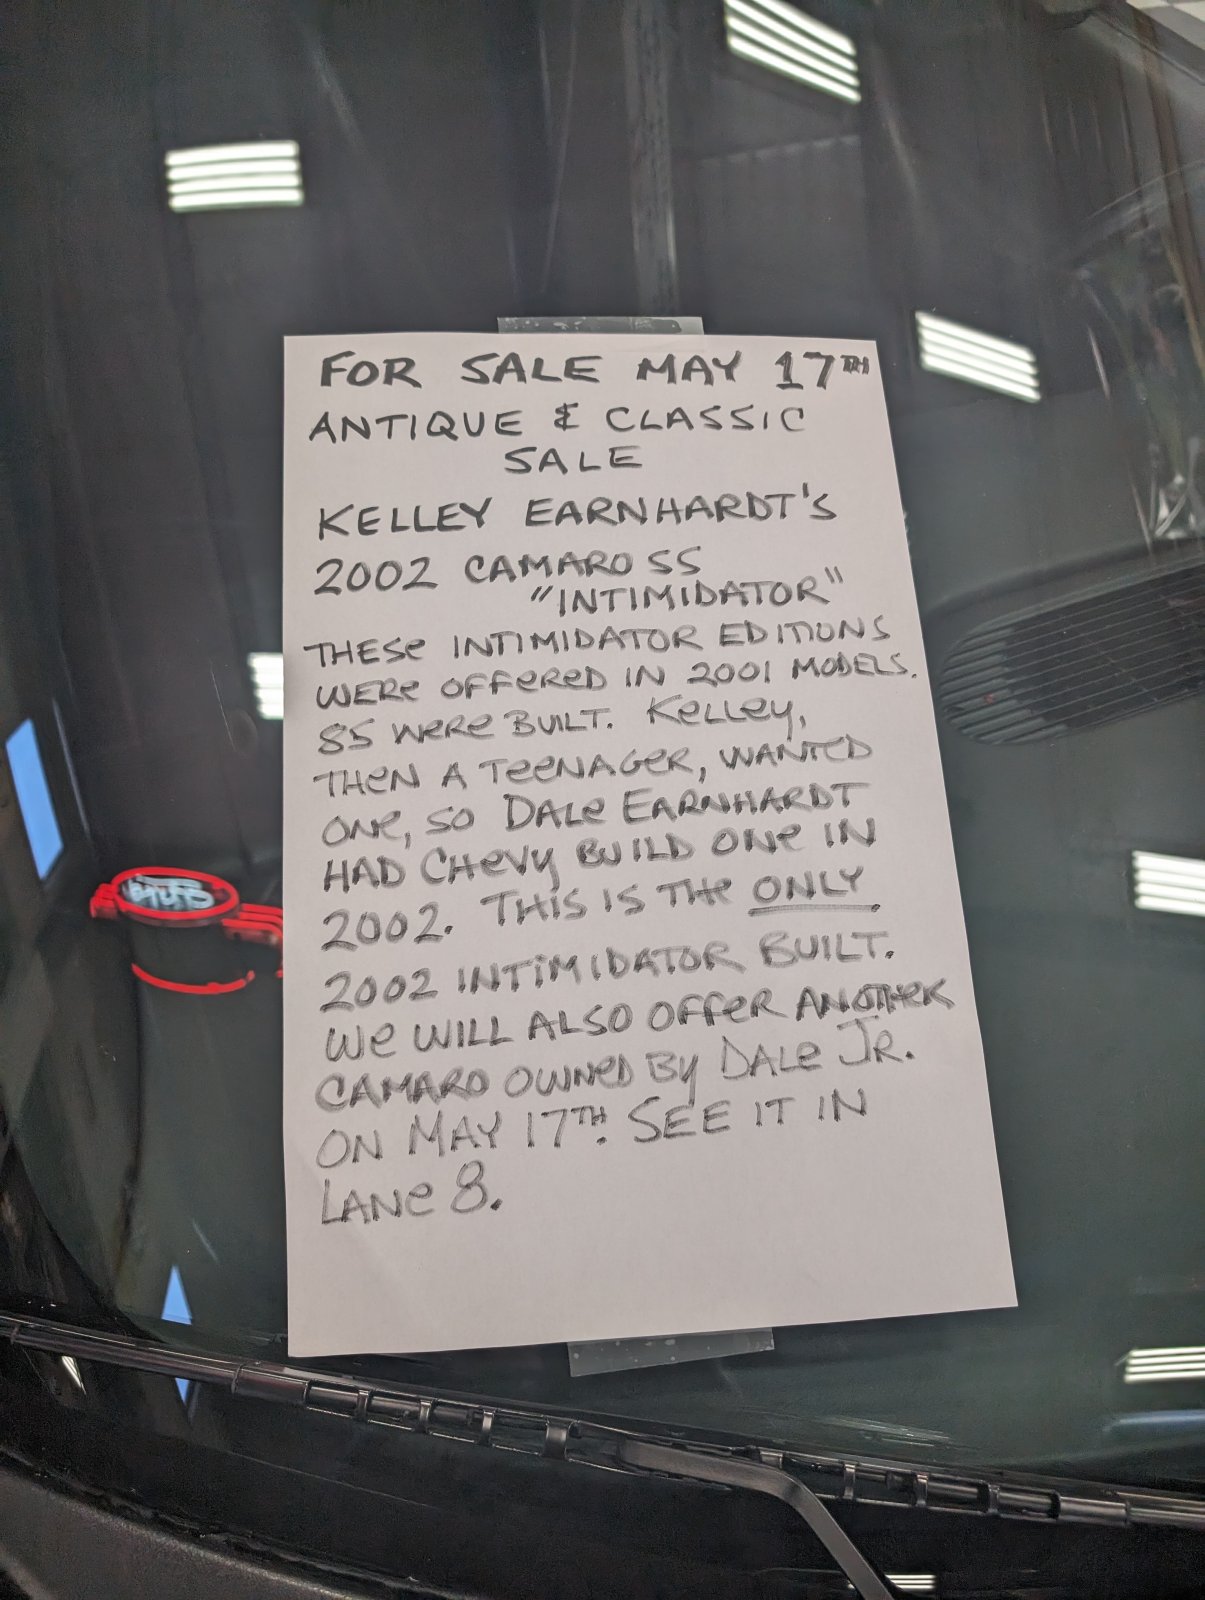 FOR SALE MAY 17TH
ANTIQUE & CLASSIC
SALE
KELLEY EARNHARDT'S
2002 CAMARO SS
"INTIMIDATOR"
THESE INTIMIDATOR EDITIONS
WERE OFFERED IN 2001 MODELS.
85 WERE BUILT. KELLEY,
THEN A TEENAGER, WANTED
ONE, SO DALE EARNHARDT
HAD CHEVY BUILD ONE IN
2002. THIS IS THE ONLY
2002 INTIMIDATOR BUILT.
WE WILL ALSO OFFER ANOTHER
CAMARO OWNED BY DALE JR.
ON MAY 17TH. SEE IT IN
LANE 8.